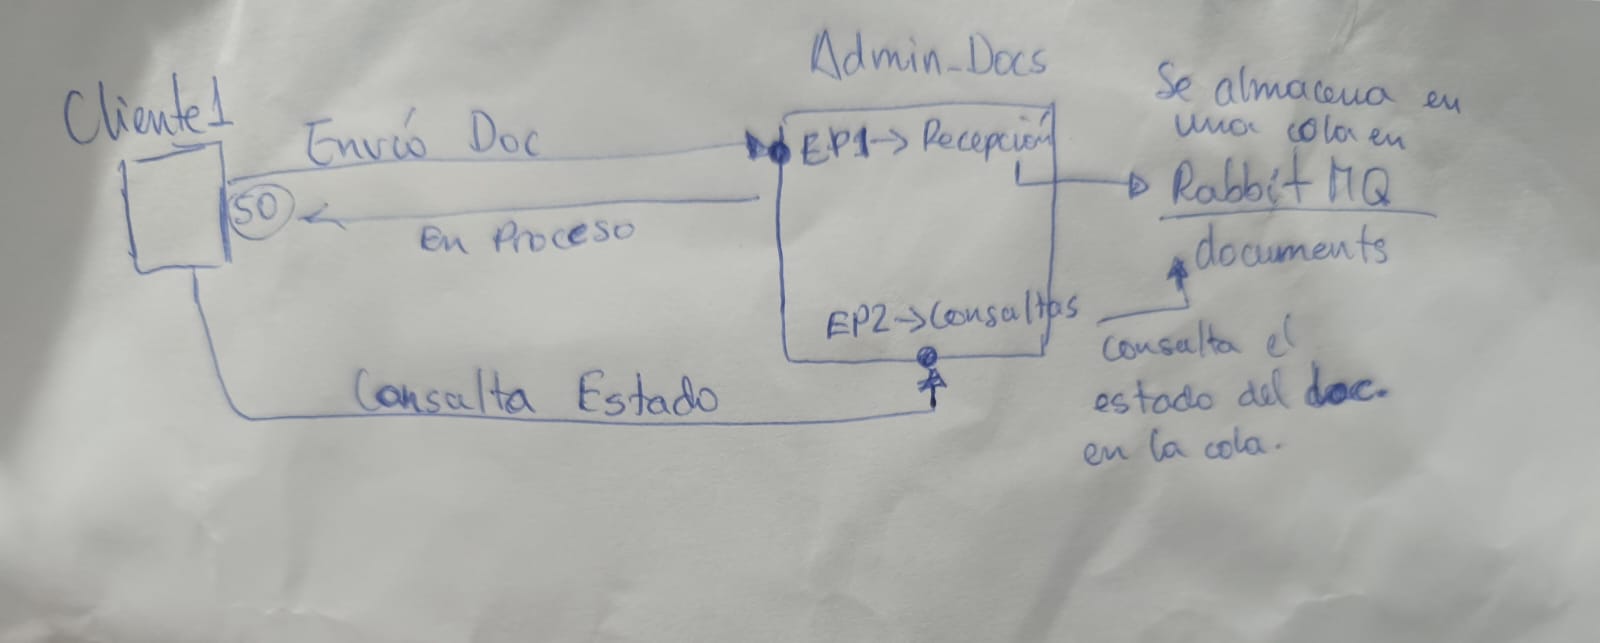 Cliente1
Envió Doc
50
En Proceso
Consulta Estado
Admin_Docs
EP1→Recepción
EP2→Consultas
Se almacena en
una cola en
RabbitMQ
documents
consulta el
estado del doc.
en la cola.